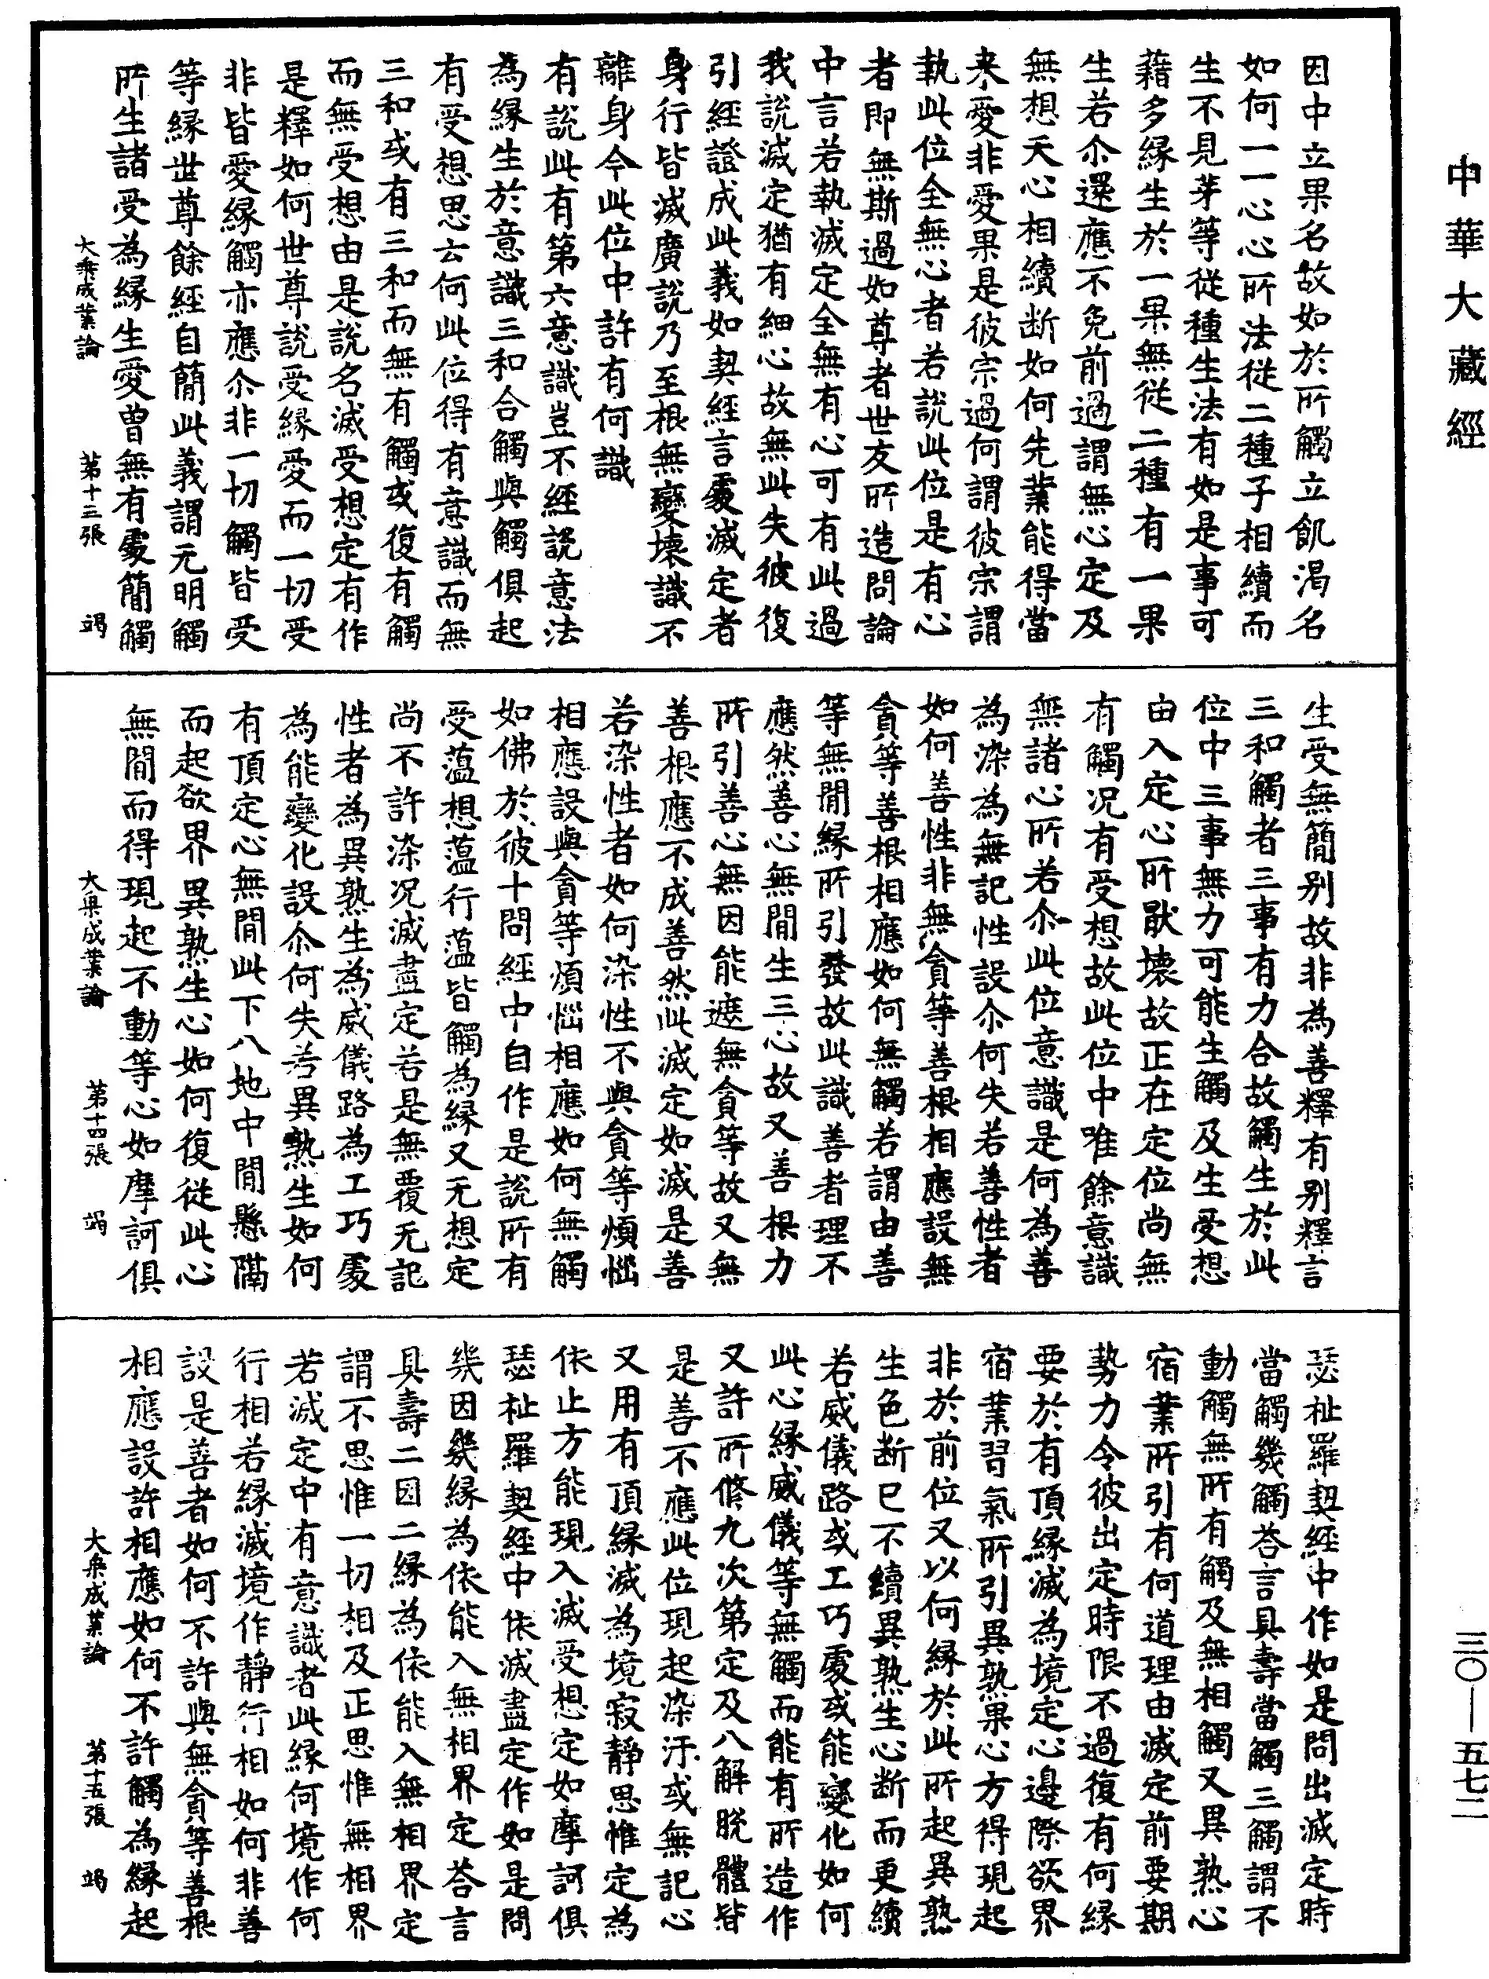 中華大藏經
三〇—五七二
因中立果名故如於所觸立飢渴名
如何一一心心所法從二種子相續而
生不見芽等從種生法有如是事可
藉多緣生於一果無從二種有一果
生若尒還應不免前過謂無心定及
無想天心相續斷如何先業能得當
来愛非愛果是彼宗過何謂彼宗謂
執此位全無心者若說此位是有心
者即無斯過如尊者世友所造問論
中言若執滅定全無有心可有此過
我說滅定猶有細心故無此失彼復
引經證成此義如契經言處滅定者
身行皆滅廣說乃至根無變壞識不
離身今此位中許有何識
有說此有第六意識豈不經說意法
為緣生於意識三和合觸與觸俱起
有受想思云何此位得有意識而無
三和或有三和而無有觸或復有觸
而無受想由是說名滅受想定有作
是釋如何世尊說受緣愛而一切受
非皆愛緣觸亦應尒非一切觸皆受
等緣世尊餘經自簡此義謂无明觸
所生諸受為緣生愛曾無有處簡觸
大乘成業論　第十三張　竭
生受無簡別故非為善釋有別釋言
三和觸者三事有力合故觸生於此
位中三事無力可能生觸及生受想
由入定心所猒壞故正在定位尚無
有觸況有受想故此位中唯餘意識
無諸心所若尒此位意識是何為善
為染為無記性設尒何失若善性者
如何善性非無貪等善根相應設無
貪等善根相應如何無觸若謂由善
等無間緣所引發故此識善者理不
應然善心無間生三心故又善根力
所引善心無因能遮無貪等故又無
善根應不成善然此滅定如滅是善
若染性者如何染性不與貪等煩惱
相應設與貪等煩惱相應如何無觸
如佛於彼十問經中自作是說所有
受蘊想蘊行蘊皆觸為緣又无想定
尚不許染況滅盡定若是無覆无記
性者為異熟生為威儀路為工巧處
為能變化設尒何失若異熟生如何
有頂定心無間此下八地中間懸隔
而起欲界異熟生心如何復從此心
無間而得現起不動等心如摩訶俱
大乘成業論　第十四張　竭
瑟祉羅契經中作如是問出滅定時
當觸幾觸荅言具壽當觸三觸謂不
動觸無所有觸及無相觸又異熟心
宿業所引有何道理由滅定前要期
勢力令彼出定時限不過復有何緣
要於有頂緣滅為境定心邊際欲界
宿業習氣所引異熟果心方得現起
非於前位又以何緣於此所起異熟
生色斷已不續異熟生心斷而更續
若威儀路或工巧處或能變化如何
此心緣威儀等無觸而能有所造作
又許所修九次第定及八解脫體皆
是善不應此位現起染汙或無記心
又用有頂緣滅為境寂靜思惟定為
依止方能現入滅受想定如摩訶俱
瑟祉羅契經中依滅盡定作如是問
幾因幾緣為依能入無相界定荅言
具壽二因二緣為依能入無相界定
謂不思惟一切相及正思惟無相界
若滅定中有意識者此緣何境作何
行相若緣滅境作靜行相如何非善
設是善者如何不許與無貪等善根
相應設許相應如何不許觸為緣起
大乘成業論　第十五張　竭